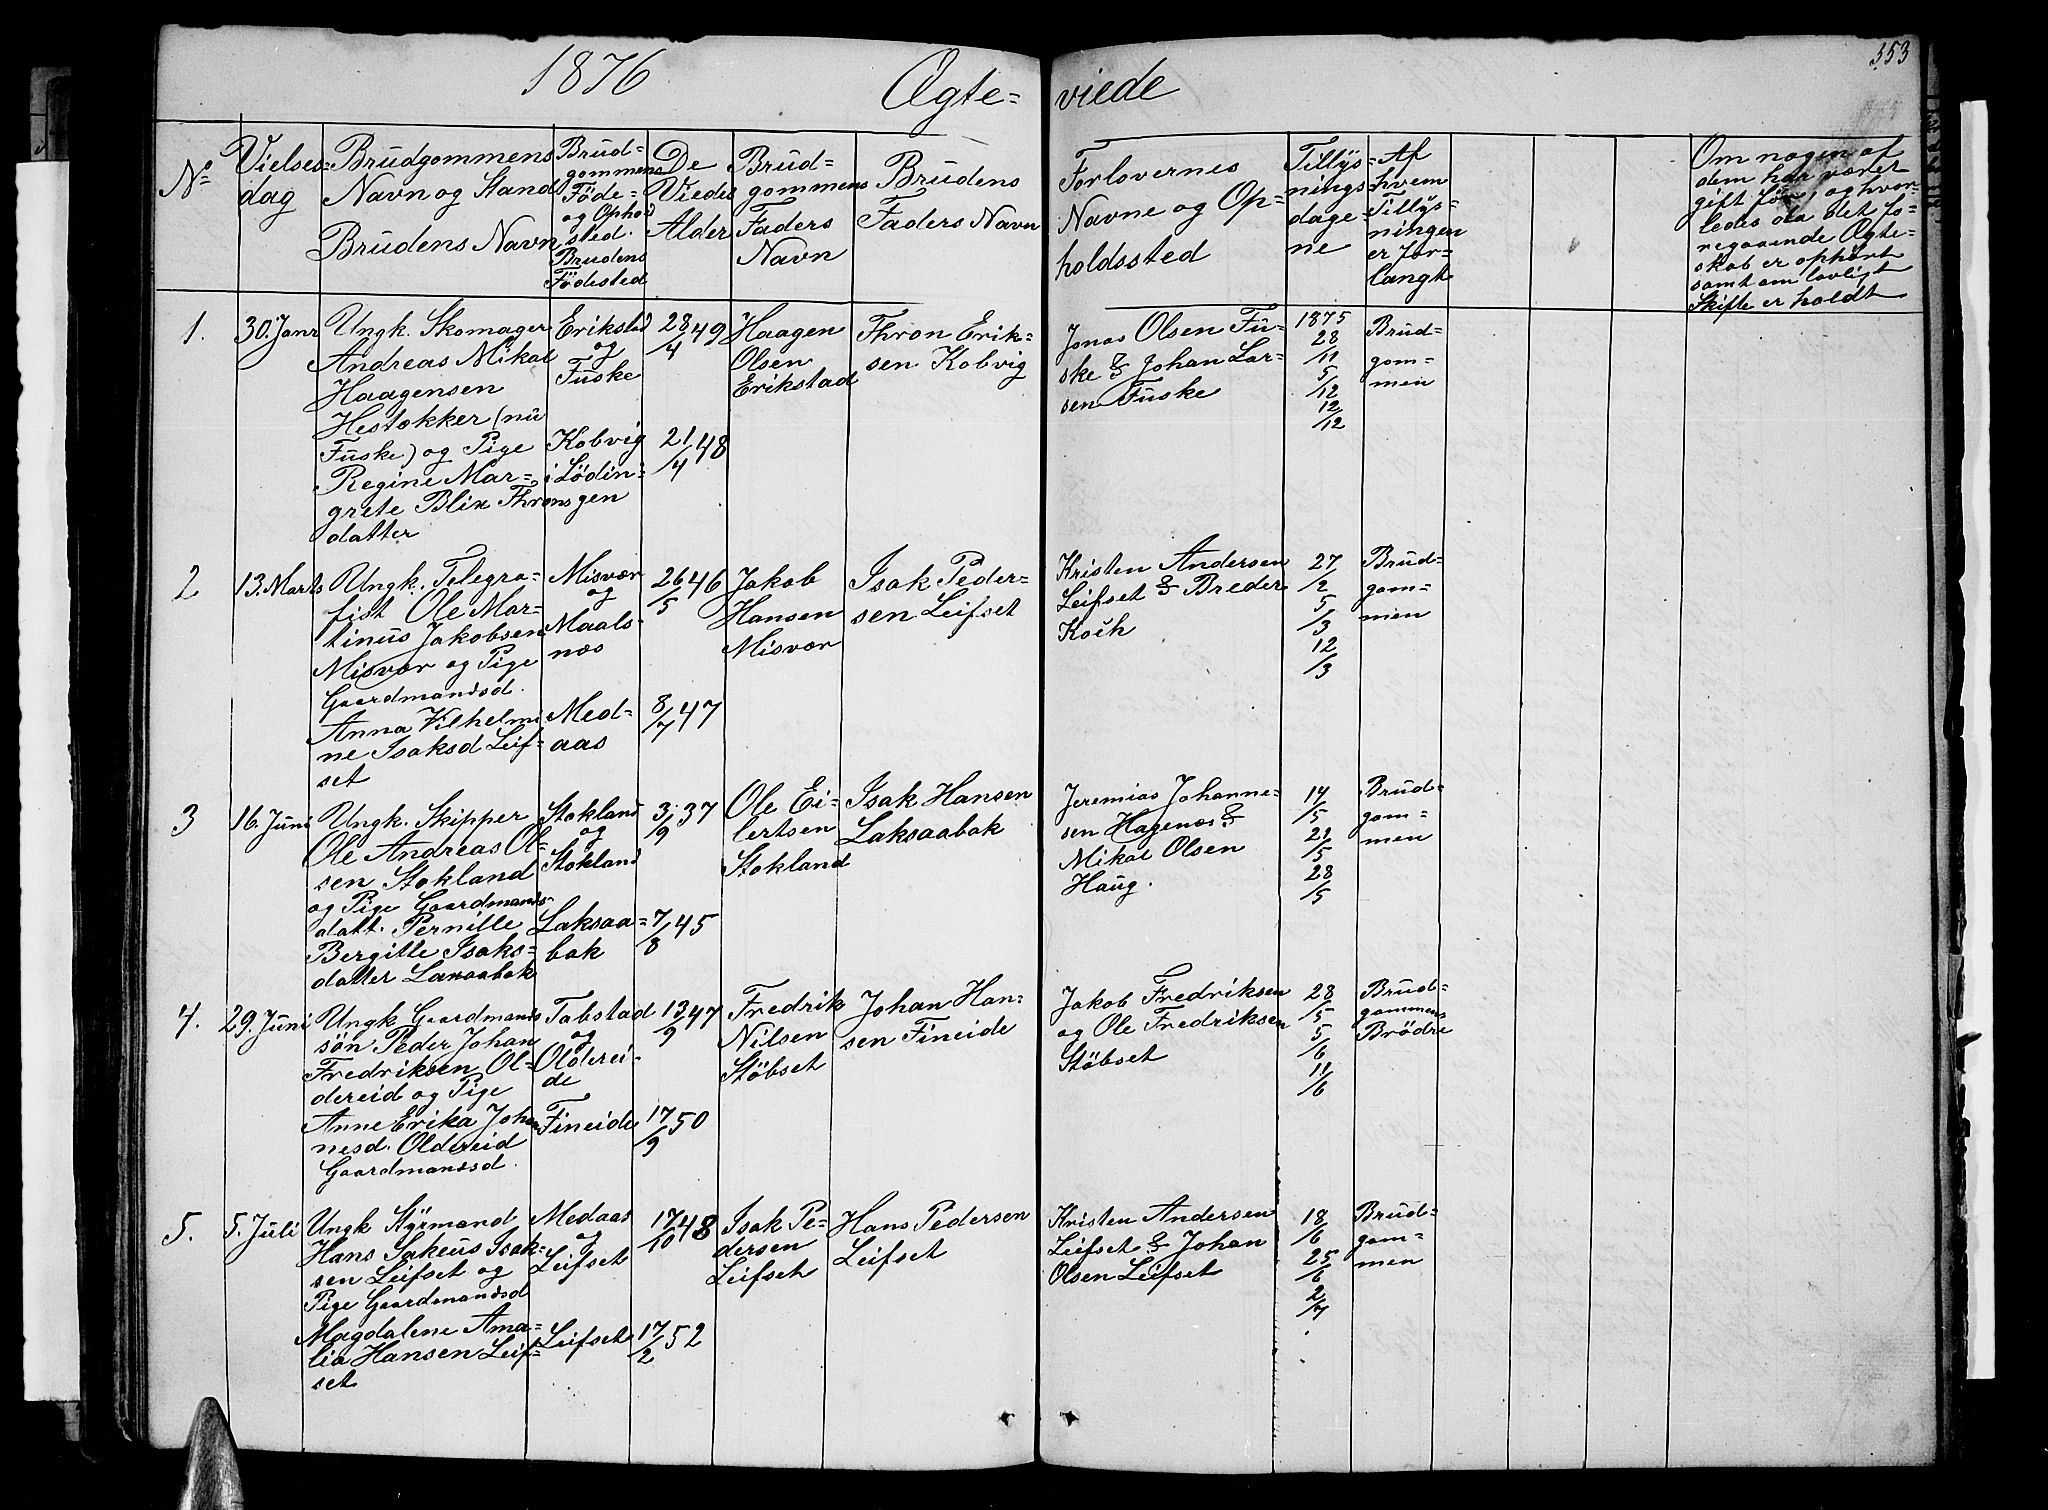 1876 Ægte= viede 353
No
Vielses=
dag
Brudgommens
Navn og Stand
Brudens Navn
Brud=
gommens
Föde=
og Ophold
sted.
Brudens
Födested
De
Viedes
Alder
Brud=
gommens
Faders
Navn
Brudens
Faders Navn
Forlovernes
Navne og Op=
holdssted
Tillys=
nings
dage
ne
Af
hvem
Tillys=
ningen
er for=
langt
Om nogen af
dem har været
gift för, og hvor=
ledes da det fo=
regaaende Ægte=
skab er ophört
samt om lovligt
Skifte er holdt
1.
30. Janr
Ungk. Skomager
Andreas Mikal
Haagensen
Hestøkker (nu
Fuske) og Pige
Regine Mar=
grete Blix Throns
datter
Erikstad
og
Fuske
Kobvig
i Lödin=
gen
28/4 49
21/4 48
Haagen
Olsen
Erikstad
Thron Erik=
sen Kobvig
Jonas Olsen Fu=
ske & Johan Lar=
sen Fuske
1875
28/11
5/12
12/12
Brud=
gom=
men
2
13. Marts
Ungk. Telegra=
fist Ole Mar=
tinus Jakobsen
Misvær og Pige
Gaardmandsd.
Anna Vilhelmi
ne Isaksd Leif=
set
Misvær
og
Maals=
næs
Med=
aas
26/5 46
8/7 47
Jakob
Hansen
Misvær
Isak Peder=
sen Leifset
Kristen Andersen
Leifset & Breder
Koch
27/2
5/3
12/3
Brud=
gom=
men
3
16. Juni
Ungk. Skipper
Ole Andreas Ol=
sen Stokland
og Pige Gaardmands=
datt. Pernille
Bergitte Isaks=
datter Laxaabak
Stokland
og
Stokland
Laksaa=
bak
3/9 37
7/8 45
Ole Ei=
lertsen
Stokland
Isak Hansen
Laksaabak
Jeremias Johanne=
sen Hagenæs &
Mikal Olsen
Haug.
14/5
21/5
28/5
Brud=
gom=
men
4.
29. Juni
Ungk Gaardmands
sön Peder Johan
Fredriksen Ol=
dereid og Pige
Anne Erika Johan
nesd. Oldereid
Gaardmandsd.
Tabstad
og
Olderei=
de
Fineide
13/9 47
17/9 50
Fredrik
Nilsen
Stöbset
Johan Han=
sen Fineide
Jakob Fredriksen
og Ole Fredriksen
Stöbset
28/5
5/6
11/6
Brud=
gommens
Brödre
5.
5. Juli
Ungk Styrmand
Hans Sakeus Isak=
sen Leifset og
Pige Gaardmandsd
Magdalene Ama=
lia Hansen Leif=
set
Medaas
og
Leifset
Leifset
17/10 48
17/2 52
Isak Pe=
dersen
Leifset
Hans Pedersen
Leifset
Kristen Andersen
Leifset & Johan
Olsen Leifset
18/6
25/6
2/7
Brud=
gom=
men